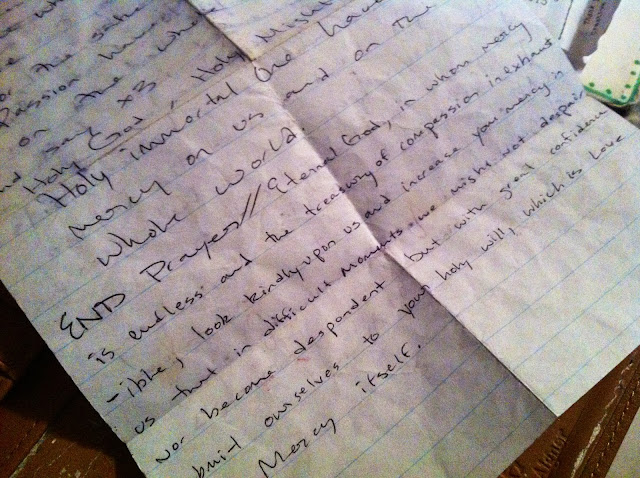 or the sake
Passion
on the whole
say x3
Holy God, Holy Might
Holy immortal One have
mercy on us and on the
whole world.
END Prayer // Eternal God, in whom mercy
is endless and the treasury of compassion inexhaust
-ible, look kindly upon us and increase your mercy in
us that in difficult moments we might not despair
nor become despondent but with great confidence
bmit ourselves to your holy will, which is Love
Mercy itself.